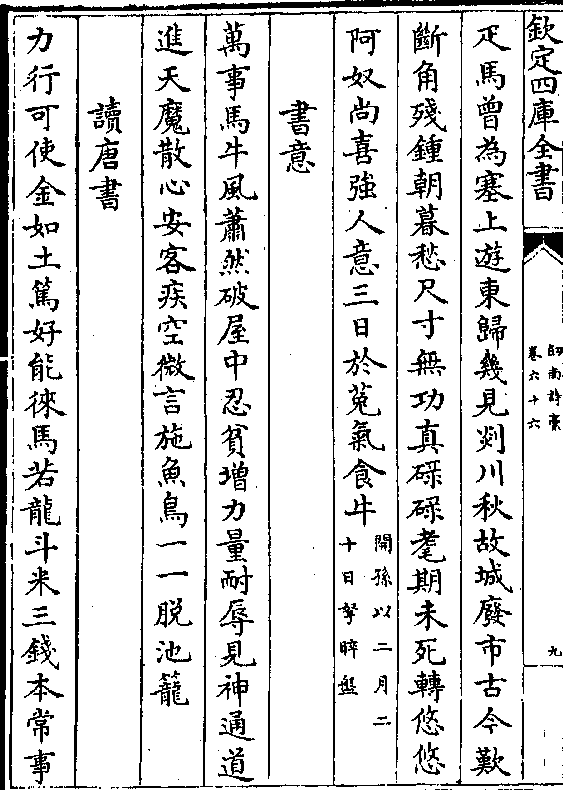 欽定四庫全書
劍南詩稾
卷六十六
九
疋馬曾為塞上遊東歸幾見剡川秋故城廢市古今歎
斷角殘鍾朝暮愁尺寸無功真碌碌耄期未死轉悠悠
阿奴尚喜強人意三日於菟氣食牛開孫以二月二
十日孥晬盤
書意
萬事馬牛風蕭然破屋中忍貧增力量耐辱見神通道
進天魔散心安客疾空微言施魚鳥一一脱池籠
讀唐書
力行可使金如土篤好能徠馬若龍斗米三錢本常事